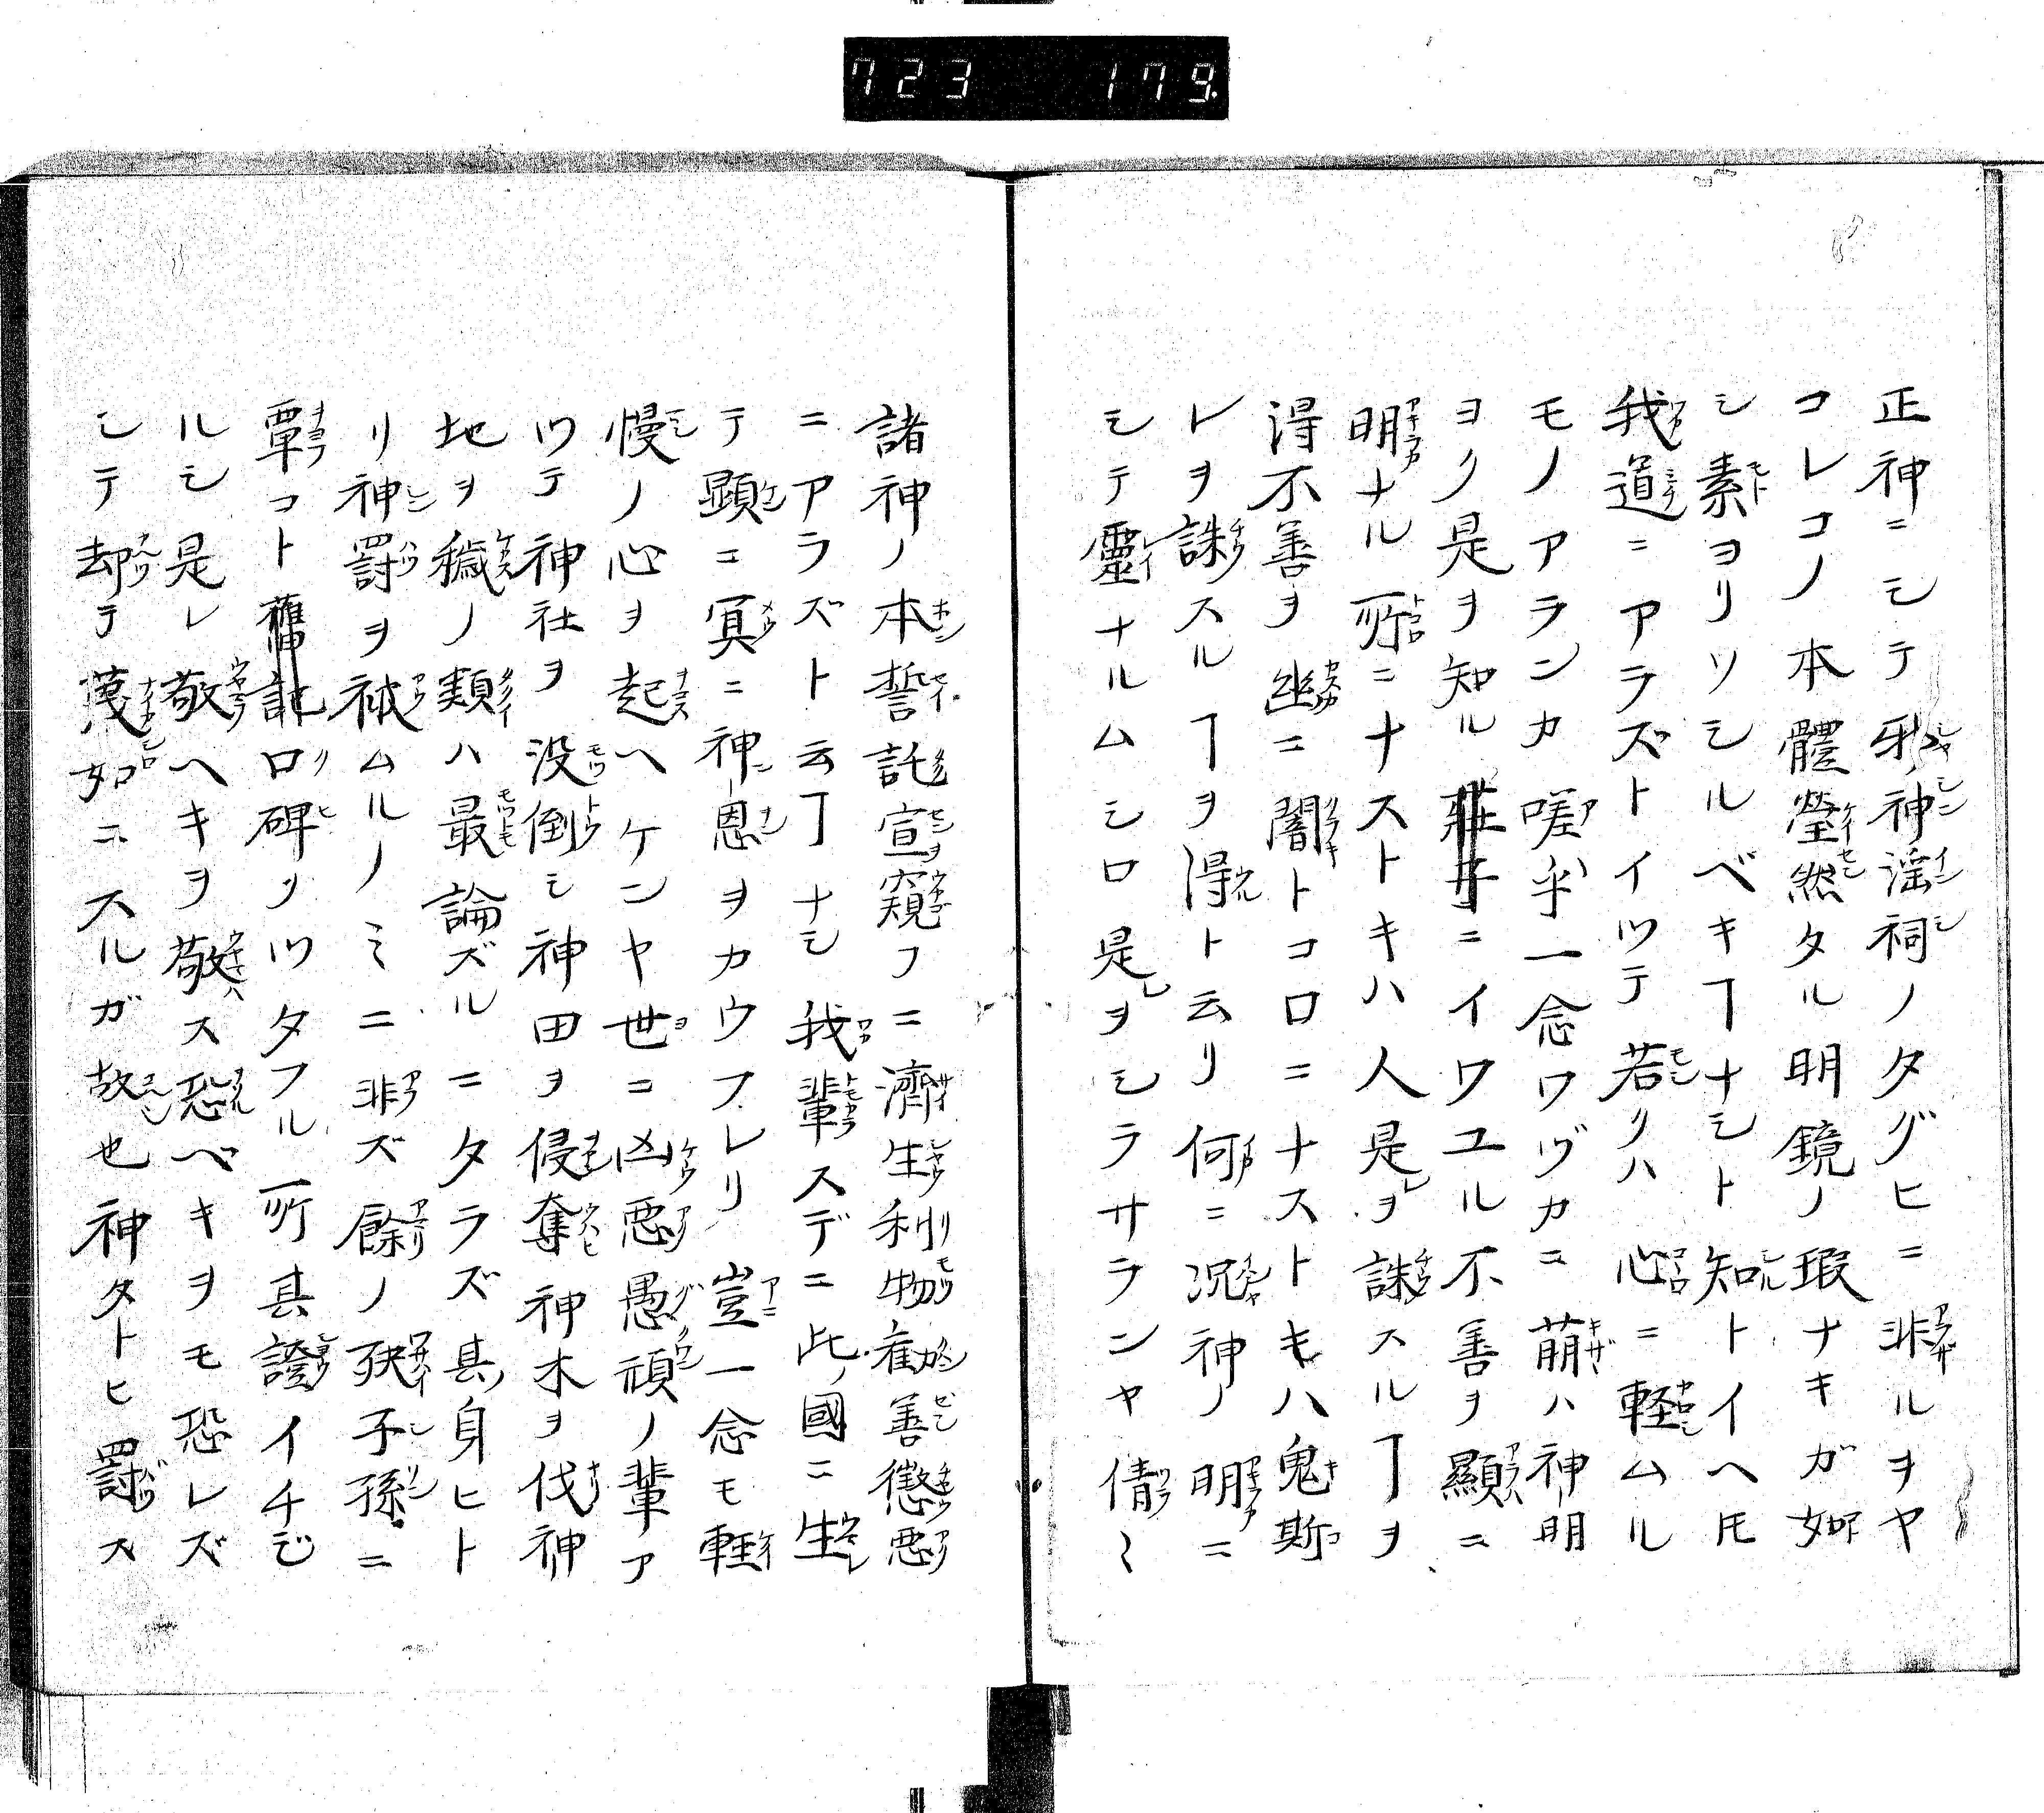 723 179.
正神ニシテ邪神淫祠ノタグヒニ非ルヲヤ
コレコノ本體瑩然タル明鏡ノ瑕ナキガ如
シ素ヨリソシルベキヿナシト知トイヘ𪜈
我道ニアラズトイツテ若クハ心ニ軽ムル
モノアランカ嗟乎一念ワヅカニ萌ハ神明
ヨク是ヲ知ル莊子ニイワユル不善ヲ顯ニ
明ナル所ニナストキハ人是ヲ誅スルヿヲ
得不善ヲ幽ニ闇トコロニナストキハ鬼斯
レヲ誅スルヿヲ得ト云リ何ニ況神ノ明ニ
シテ靈ナルムシロ是ヲシラサランヤ倩〻
諸神ノ本誓託宣ヲ窺フニ濟生利物勧善懲悪
ニアラズト云ヿナシ我輩スデニ此國ニ生
テ顕ニ冥ニ神恩ヲカウフレリ豈一念モ軽
慢ノ心ヲ起ヘケンヤ世ニ凶悪愚頑ノ輩ア
ツテ神社ヲ没倒シ神田ヲ侵奪神木ヲ伐神
地ヲ穢ノ類ハ最論ズルニタラズ其身ヒト
リ神罰ヲ被ムルノミニ非ズ餘ノ殃子孫ニ
覃コト舊記口碑ノツタフル所其證イチジ
ルシ是レ敬ヘキヲ敬ス恐ベキヲモ恐レズ
シテ却テ蔑如ニスルガ故也神タトヒ罸ス